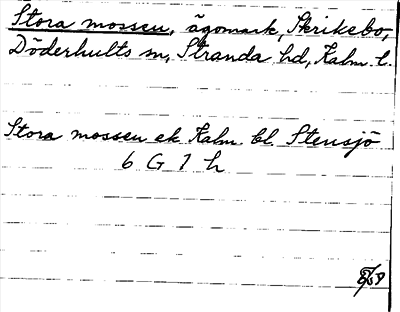 Stora mossen, ägomark, Skrikebo,
Döderhults sn, Stranda hd, Kalm. l.
Stora mossen ek Kalm bl Stensjö
6 G 7 h